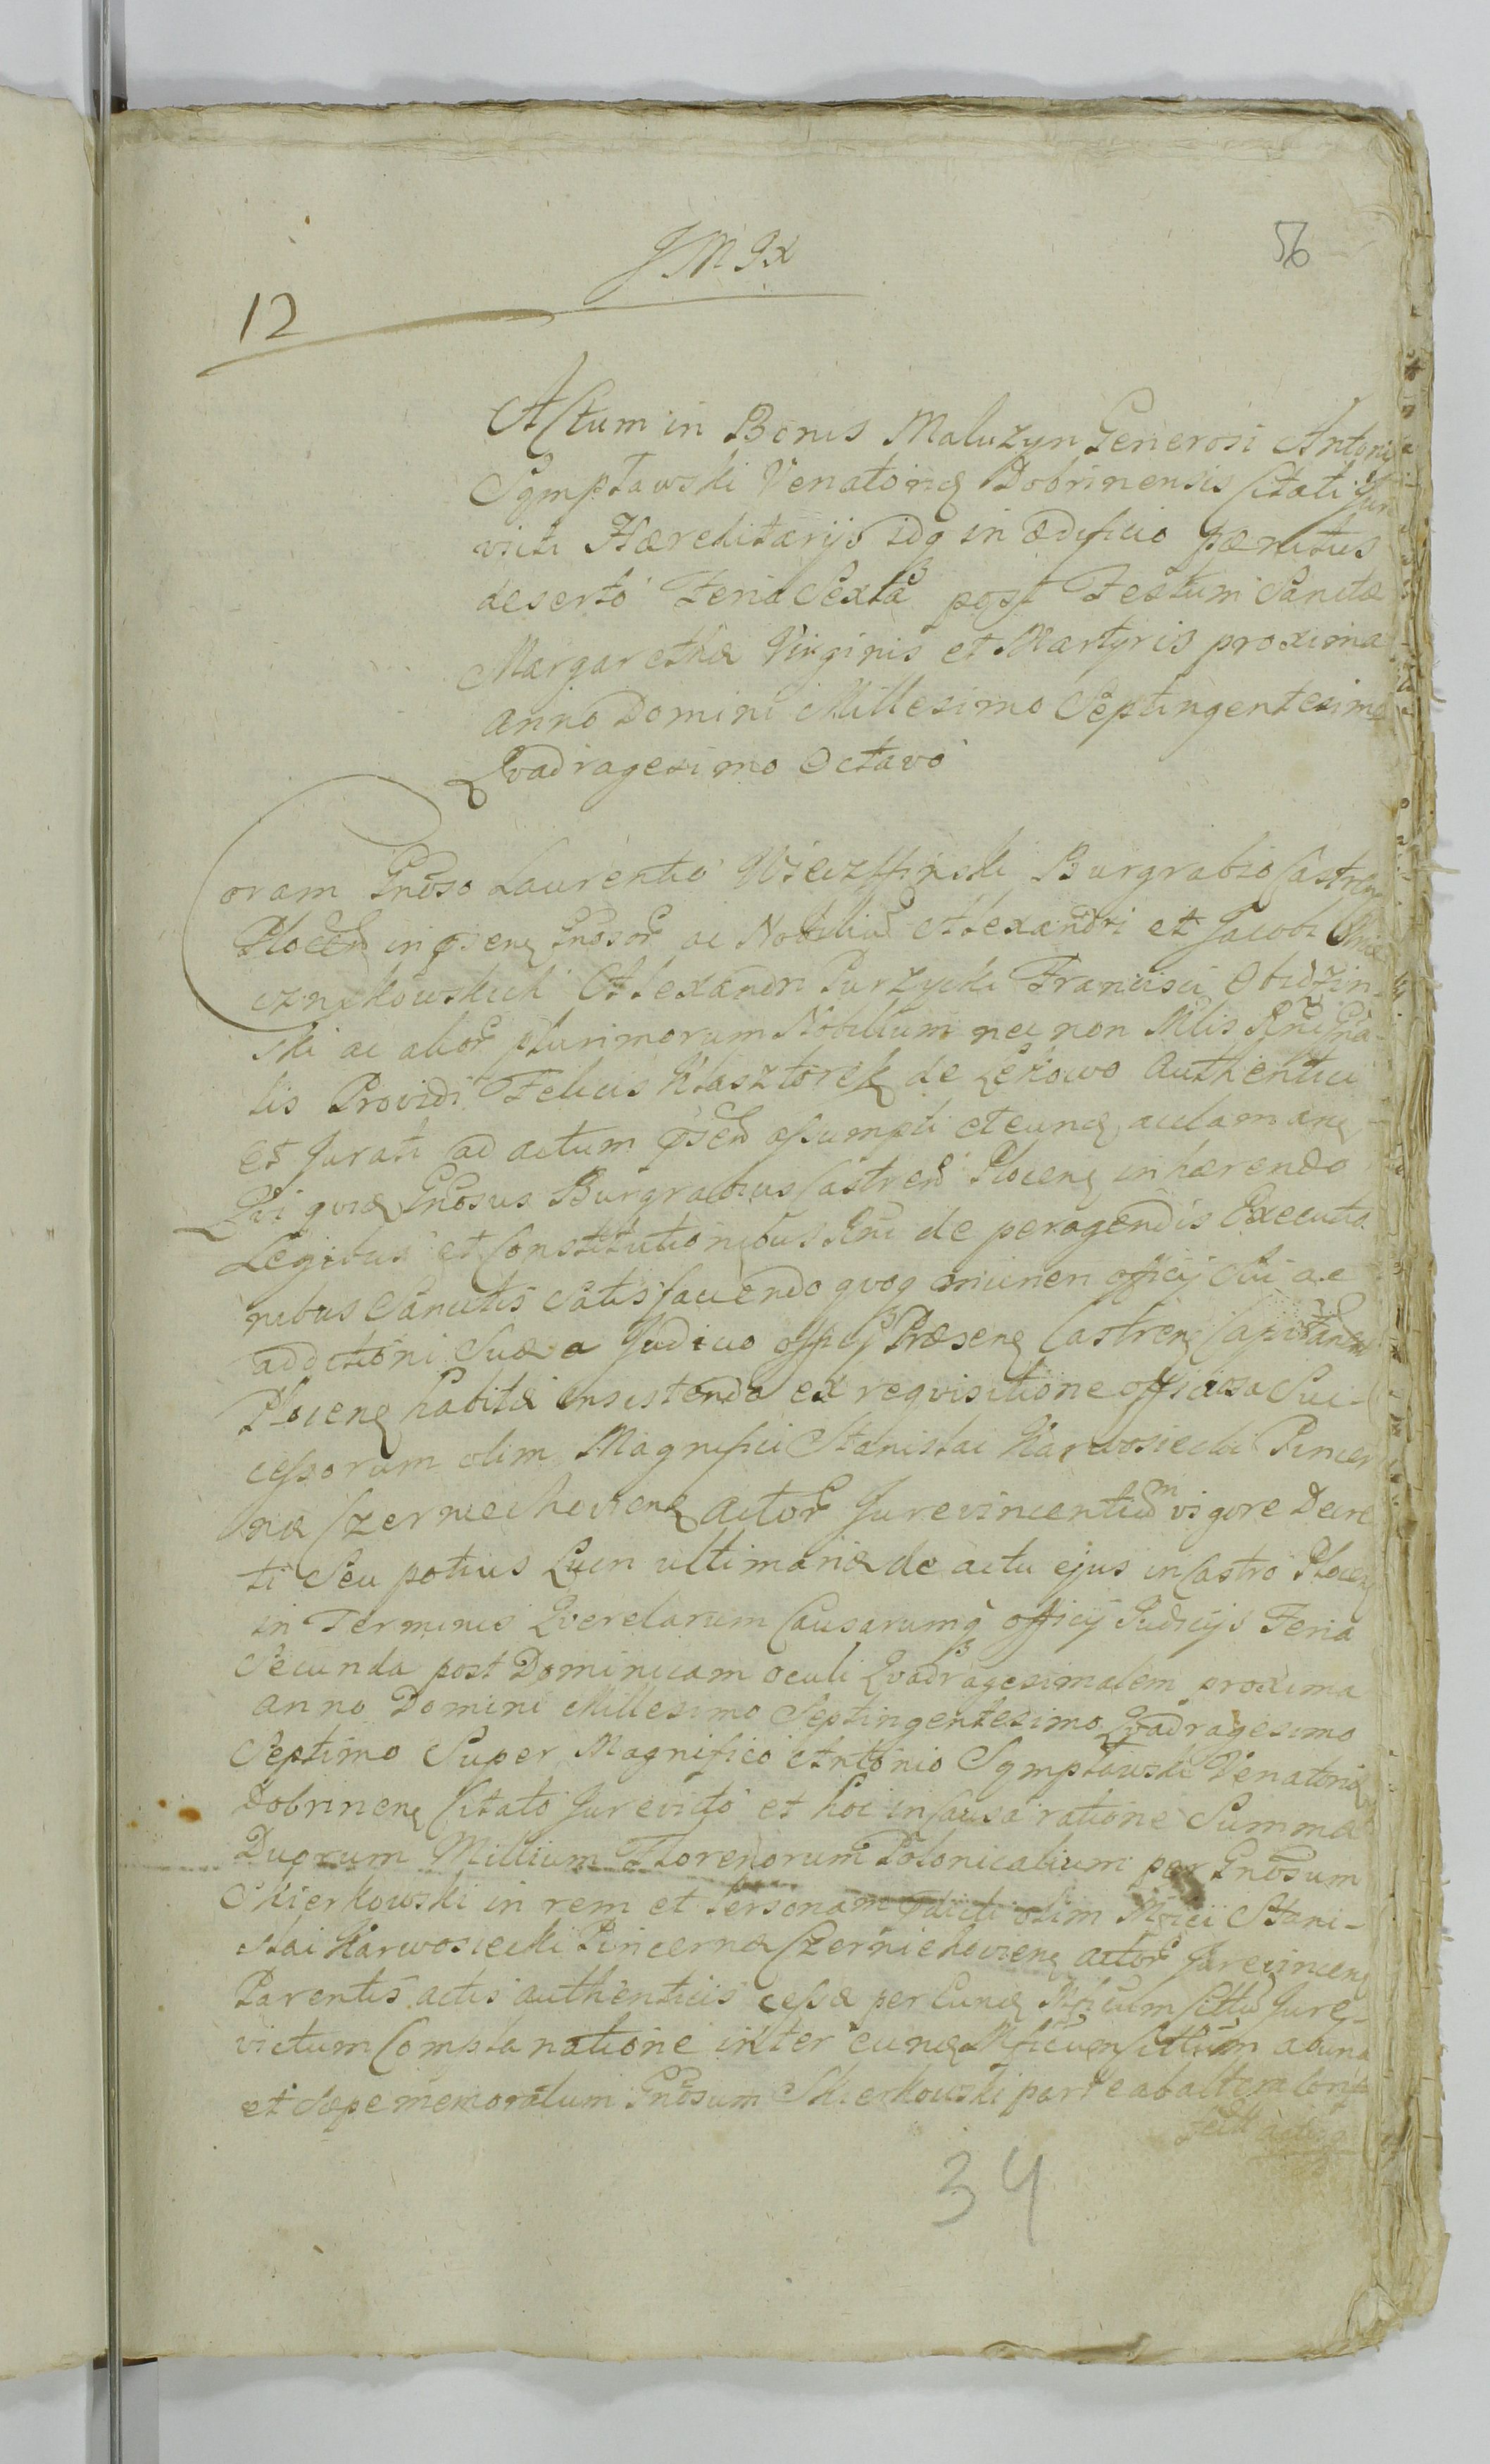 J M J x
56
12
Actum in Bonis Maluzyn Generosi Antoni
Sqmpławski Venatoris Dobrinensis Citati Jure
victi Hæreditarijs idq in ædificio pænitus
deserto Feria Sexta post Festum Sanctæ
Margarethæ Virginis et Martyris proxima
Anno Domini Millesimo Septingentesimo
Qvadragesimo Octavo
Coram Gnoso Laurentio Burgrabio Castren
Plocen in psenę Gnosor ac Nobiliu Alexandri et Jacobi
Alexandri Purzycki Francisci Obidzin-
ski ac alior plurimorum Nobilium nec non Mlis Rni Gna-
lis Providi Felicis Klasztorek de Lekowo Authentici
et Jurati ad actum psen assumpti et eunde aclamanę
Qvi qvidę Gnosus Burgrabius Castren Plocenę inhærendo
Legibus et Constitutionibus Rni de peragendis Executio
nibus Sancitis Satisfaciendo qvoq muneri officij Sui ac
addictioni Suæ a Judicio officij Præsenę Castrenę Capitanea
Plocenę habitæ insistendo ex reqvisitione officiosa Suc-
cessorum olim Magnifici Stanislai Karwosiecki Pincer
næ Czerniechoviene Actor Jurevincentium vigore Decre
ti Seu potius Lucri ultimarię de actu ejus in Castro Plocen
in Terminis Qverelarum Causarumq officij Judicijs Feria
Secunda post Dominicam oculi Qvadragesimalem proxima
Anno Domini Millesimo Septingentesimo Qvadragesimo
Septimo Super Magnifico Antonio Sqmpławski Venatorię
Dobrinenę Citato Jurevicto et hoc in Causa ratione Summæ
Duorum Millium Florenorum Polonicalium per Gnosum
Skierkowski in rem et Personam olim Mfici Stani-
slai Karwosiecki Pincernæ Czerniechovienę actor Jurevincenę
Parentis actis authenticis cessæ per Eundę Mficum Cittu Jure-
victum Complanatione inter eundę Mficum Cittum ab una
et sæpe memoratum Gnosum Skierkowski parte ab altera
34